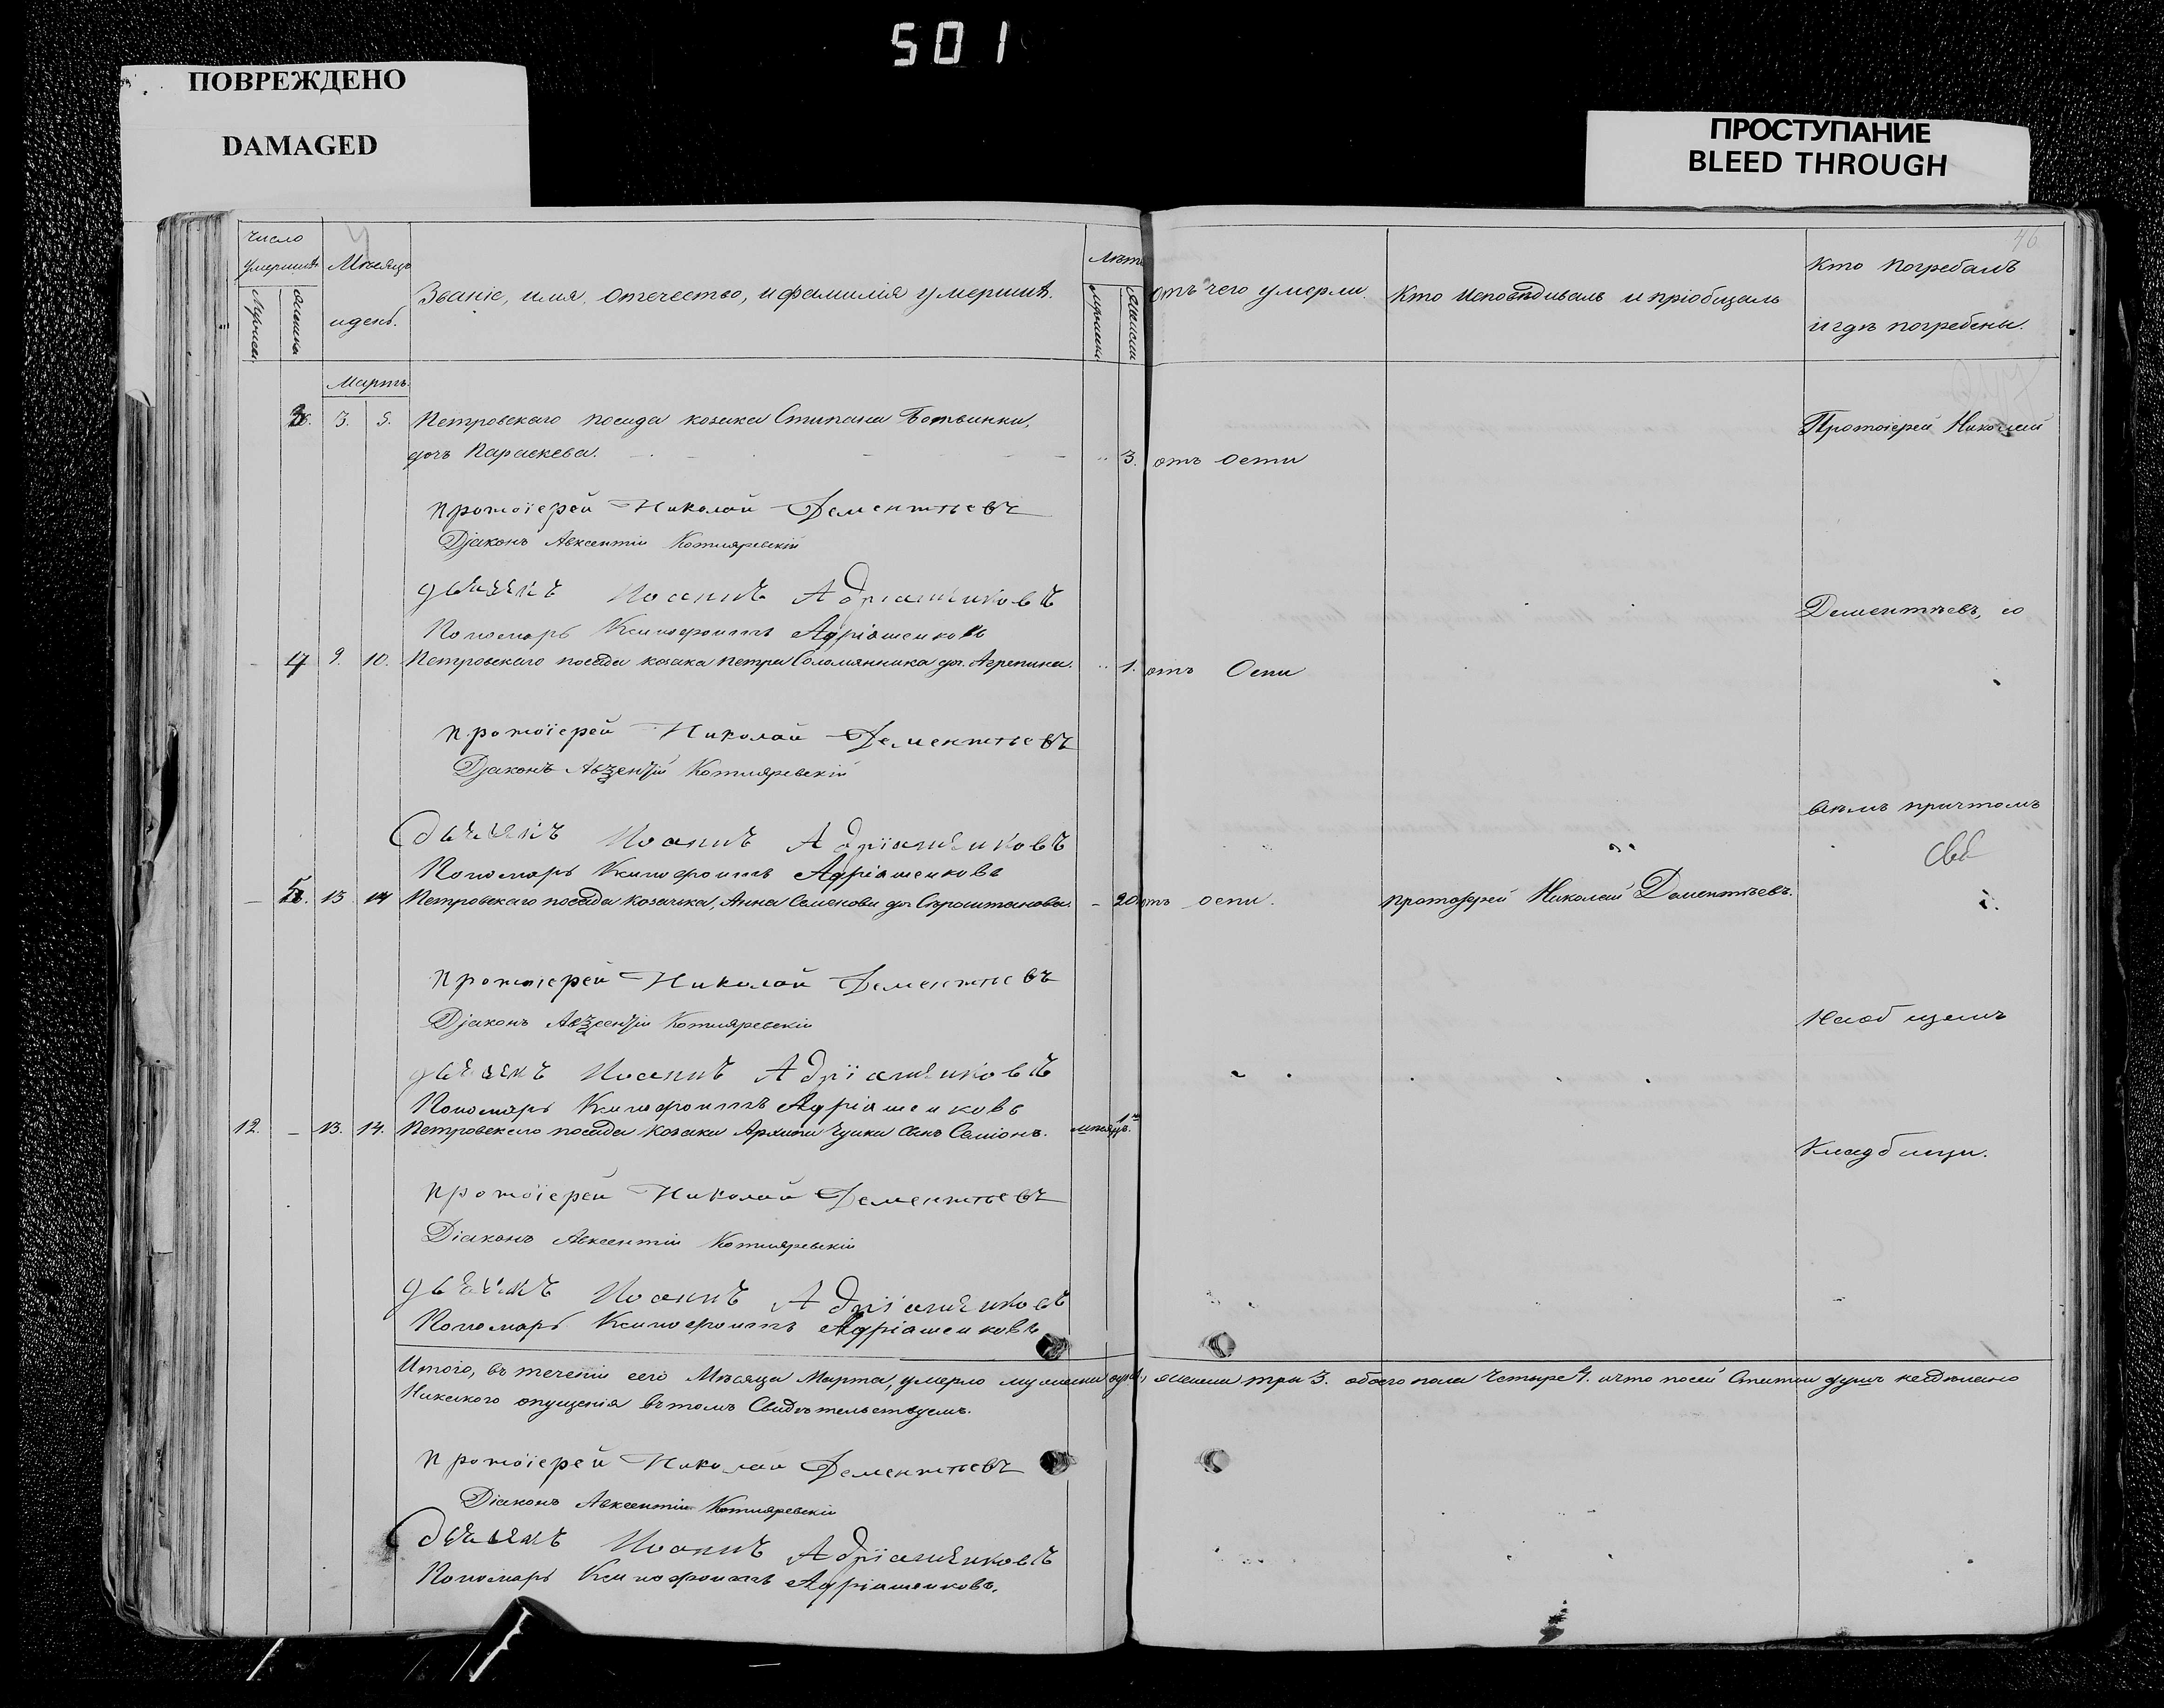 501
ПОВРЕЖДЕНО
DAMAGED
ПРОСТУПАНИЕ
BLEED THROUGH
46
Число
умершихъ
Мужска
Женска
Мѣсяцъ
и день.
Званіе, имя, отечество, и фамилія умершихъ.
Лѣта
мужска
женска
отъ чего умерли.
Кто исповѣдывалъ и пріобщалъ
Кто погребалъ
и гдѣ погребены.
Мартъ.
3. 3. 5. Петровскаго посада козака Стипана Ботвинки,
дочь Параскева. 3. отъ оспи
Протоіерей Николай
протоіерей Николай Дементьевъ
Діаконъ Авксентій Котляревскій
дьячекъ Иоаннъ Адріашенковъ
Пономарь Ксинофонтъ Адріашенковъ
Дементьевъ, со
4 9. 10. Петровскаго посада козака Петра Соломянника доч. Агрепина. 1. отъ Оспи
протоіерей Николай Дементьевъ
Діаконъ Авѯентій Котляревскій
всѣмъ причтомъ
дьячекъ Иоаннъ Адріашенковъ
Пономарь Ксинофонтъ Адріашенковъ
5. 13 14 Петровскаго посада козачка, Анна Семенова доч 20 отъ оспи. протоіерей Николай Дементьевъ.
протоіерей Николай Дементьевъ
Діаконъ Авѯентій Котляревскій
На общемъ
дьячекъ Иоаннъ Адріашенковъ
Пономарь Ксинофонтъ Адріашенковъ
12. 13. 14. Петровскаго посада козака Архипа Чуйки сынъ Симіонъ. 1 мѣсяцъ.
Кладбищи.
протоіерей Николай Дементьевъ
Діаконъ Авксентій Котляревскій
дьячекъ Иоаннъ Адріашенковъ
Пономарь Ксинофонтъ Адріашенковъ
Итого, въ теченіи сего Мѣсяца Марта, умерло мужеска женска три 3. обоего пола Четыре 4. и что посей Статьи не сдѣлано
Никакого опущенія въ томъ Свидѣтельствуемъ.
протоіерей Николай Дементьевъ
Діаконъ Авксентій Котляревскій
дьячекъ Иоаннъ Адріашенковъ
Пономарь Ксинофонтъ Адріашенковъ.